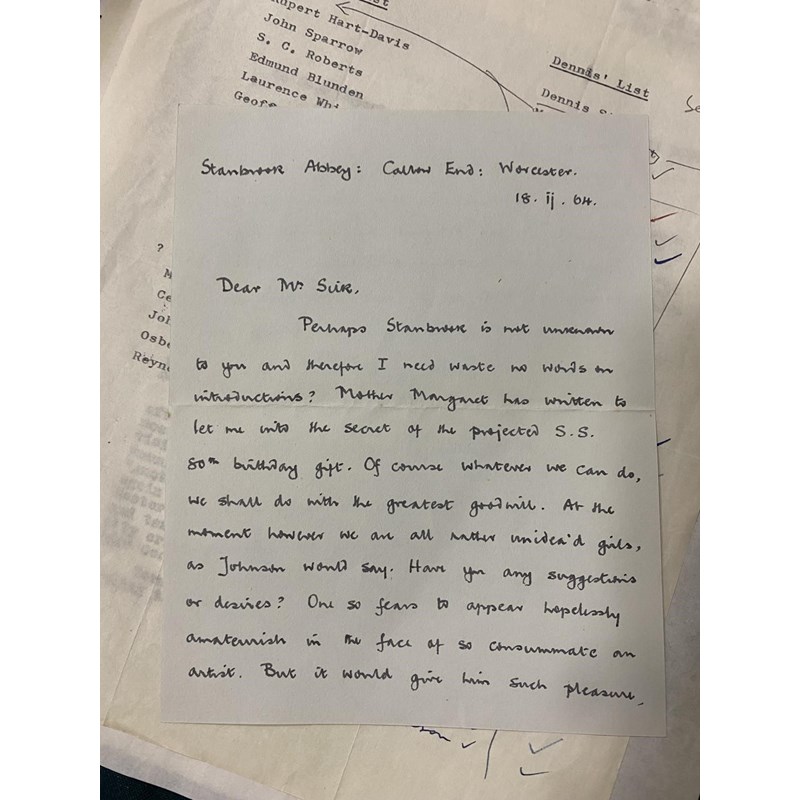 st
Rupert Hart-Davis
John Sparrow
S. C. Roberts
Edmund Blunden
Laurence Whi
Geoff
Dennis' List
Dennis S
Se
?
M
Ce
Joh
Osbe
Reyne
Stanbrook Abbey: Callow End: Worcester.
18. ij. 64.
Dear Mr Sisk,
Perhaps Stanbrook is not unknown
to you and therefore I need waste no words on
introductions? Mother Margaret has written to
let me into the secret of the projected S.S.
80th birthday gift. Of course whatever we can do,
we shall do with the greatest goodwill. At the
moment however we are all rather unidea'd girls,
as Johnson would say. Have you any suggestions
or desires? One so fears to appear hopelessly
amateurish in the face of so consummate an
artist. But it would give him such pleasure,